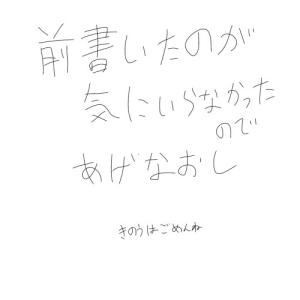 前書いたのが
気にいらなかった
ので
あげなおし
きのうはごめんね